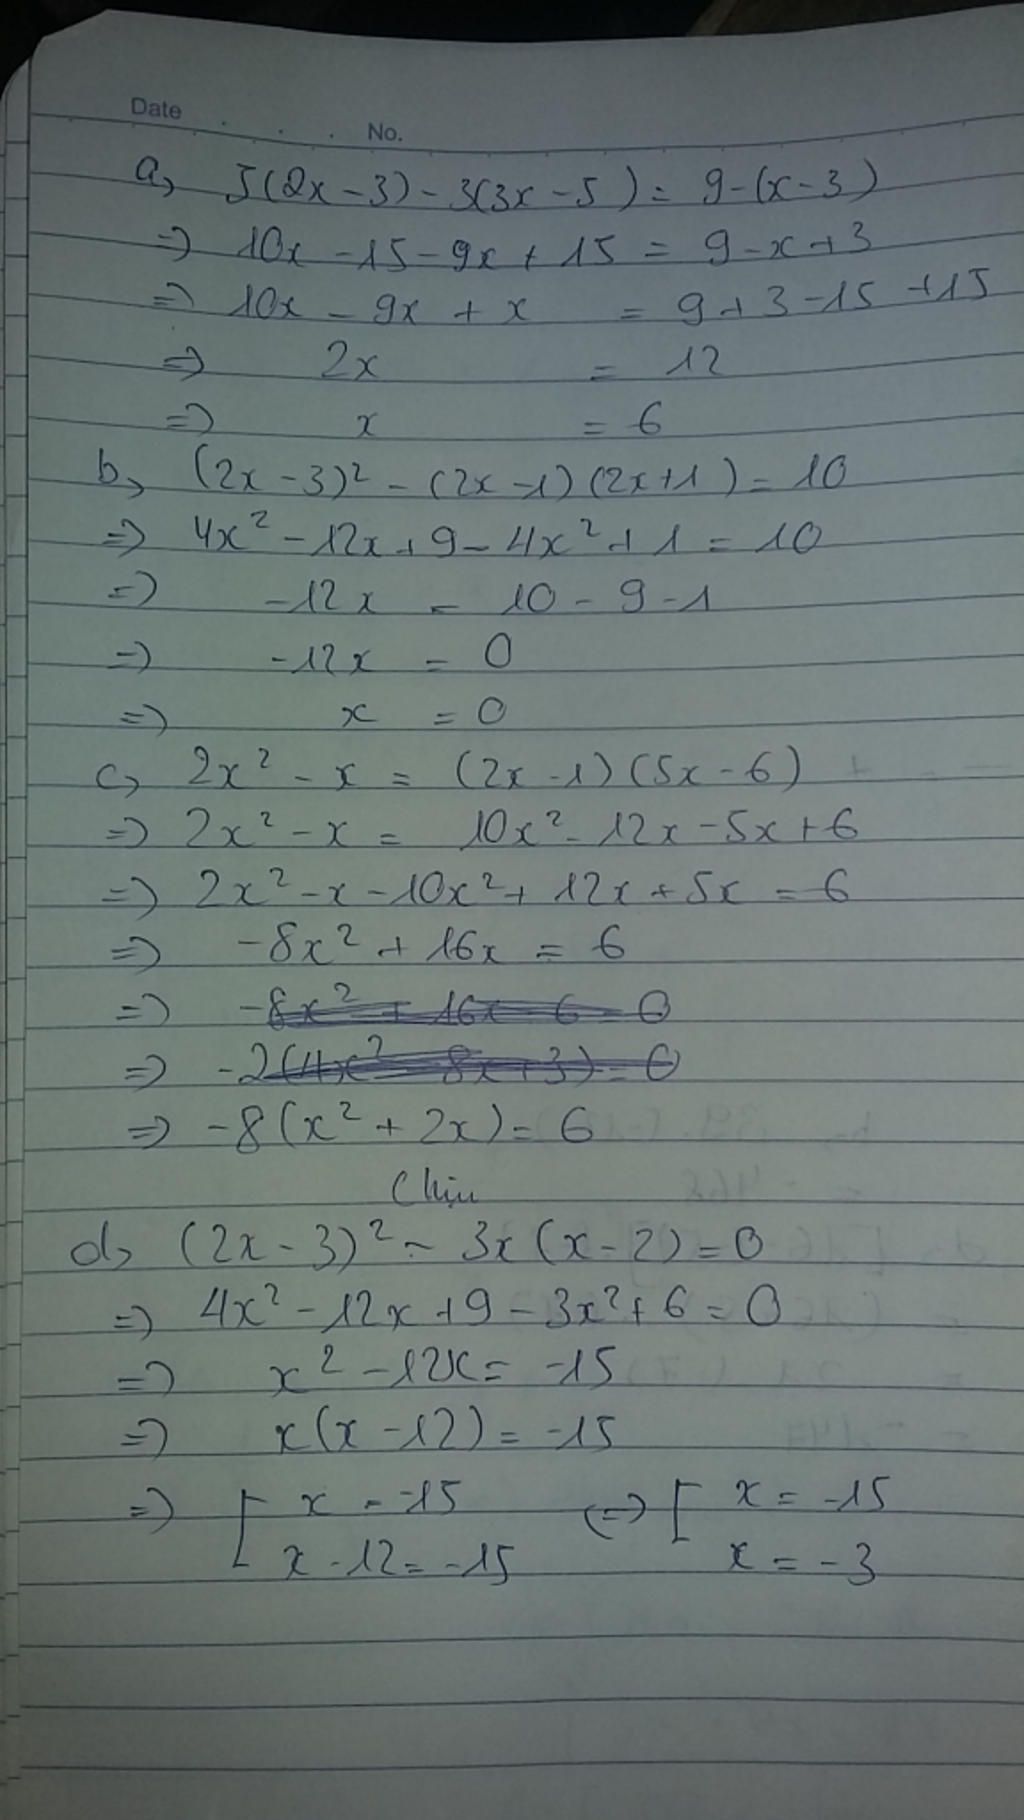 Date
No.
a, 5(2x - 3) - 3(3x - 5) = 9 - (x - 3)
=> 10x - 15 - 9x + 15 = 9 - x + 3
=> 10x - 9x + x = 9 + 3 - 15 + 15
=> 2x = 12
=> x = 6
b, (2x - 3)² - (2x - 1)(2x + 1) = 10
=> 4x² - 12x + 9 - 4x² + 1 = 10
=> -12x = 10 - 9 - 1
=> -12x = 0
=> x = 0
c, 2x² - x = (2x - 1)(5x - 6)
=> 2x² - x = 10x² - 12x - 5x + 6
=> 2x² - x - 10x² + 12x + 5x = 6
=> -8x² + 16x = 6
=> -8x² + 16x - 6 = 0
=> -2(4x² - 8x + 3) = 0
=> -8(x² + 2x) = 6
Chịu
d, (2x - 3)² - 3x(x - 2) = 0
=> 4x² - 12x + 9 - 3x² + 6 = 0
=> x² - 12x = -15
=> x(x - 12) = -15
=> [ x = -15 <=> [ x = -15
x - 12 = -15 x = -3